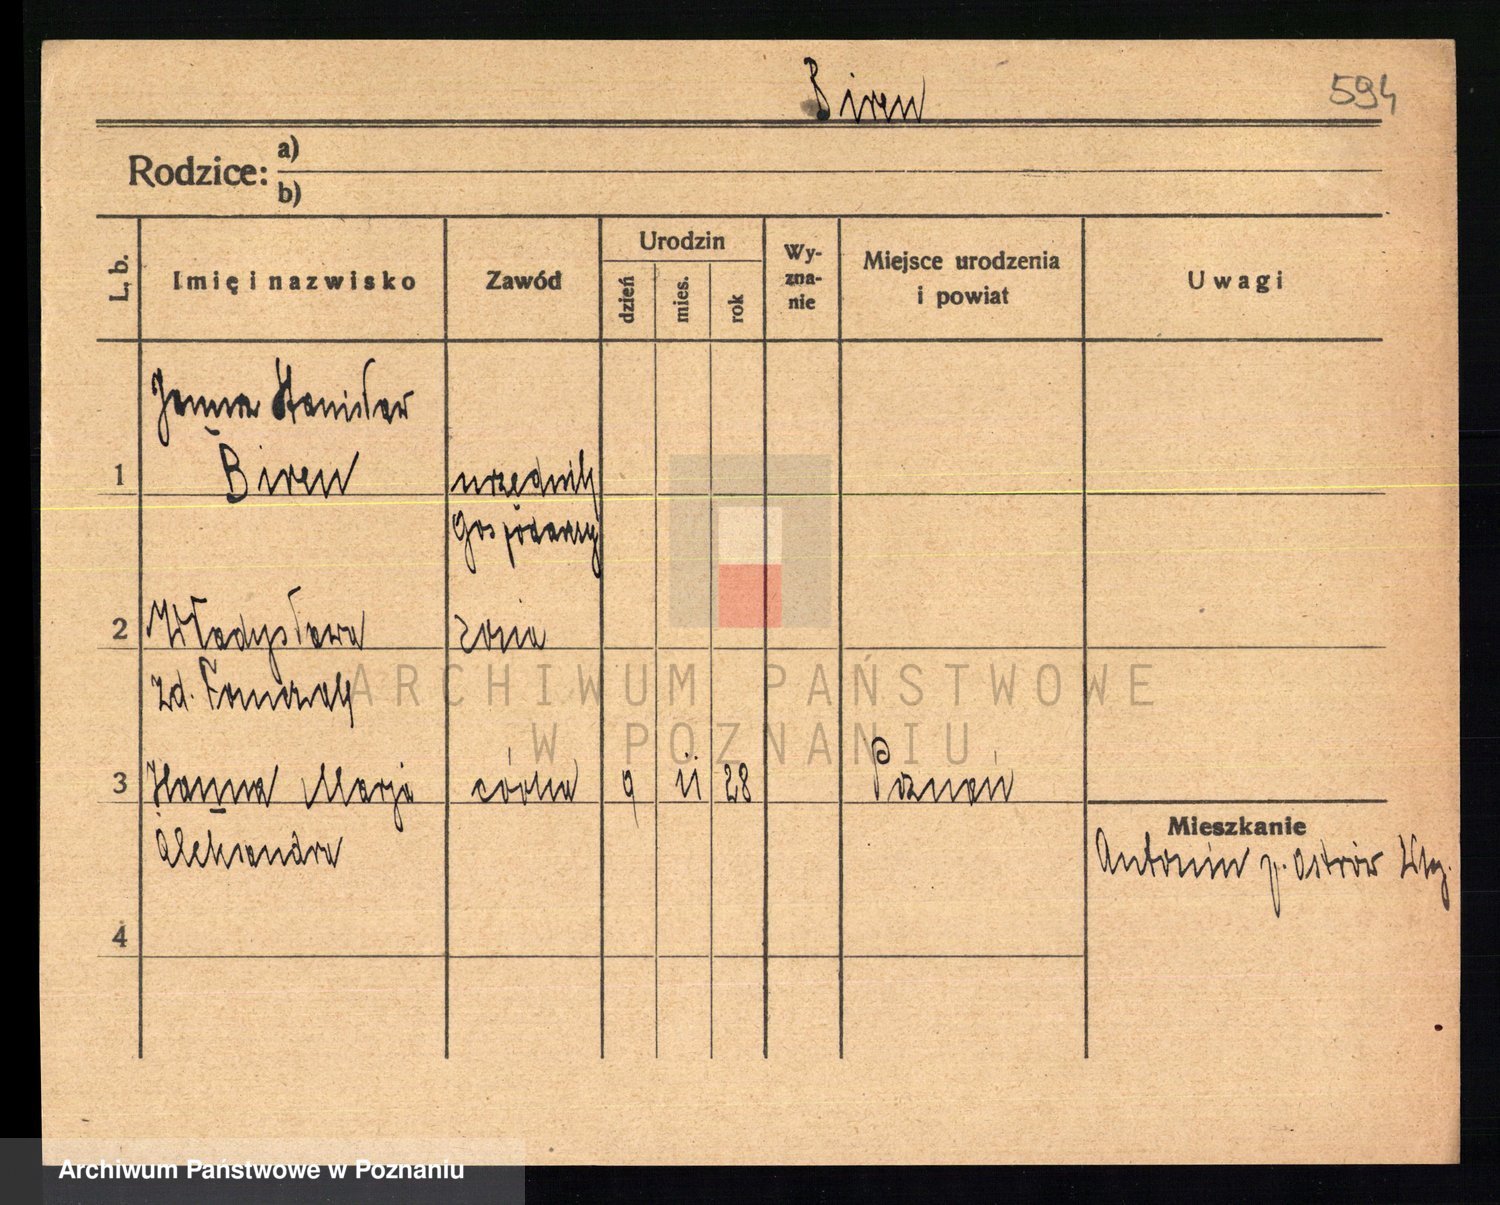 Biren
594
Rodzice: a)
b)
L. b.
Imię i nazwisko
Zawód
Urodzin
dzień
mies.
rok
Wy-
zna-
nie
Miejsce urodzenia
i powiat
Uwagi
Stanisław
1
Biren
urzędnik
Gospodarczy
2
Władysława
żona
zd.
ARCHIWUM PAŃSTWOWE
W POZNANIU
3
Hanna Marja
córka
9
II
28
Poznań
Mieszkanie
Aleksandra
Antonin p. Ostrów Wlkp.
4
Archiwum Państwowe w Poznaniu